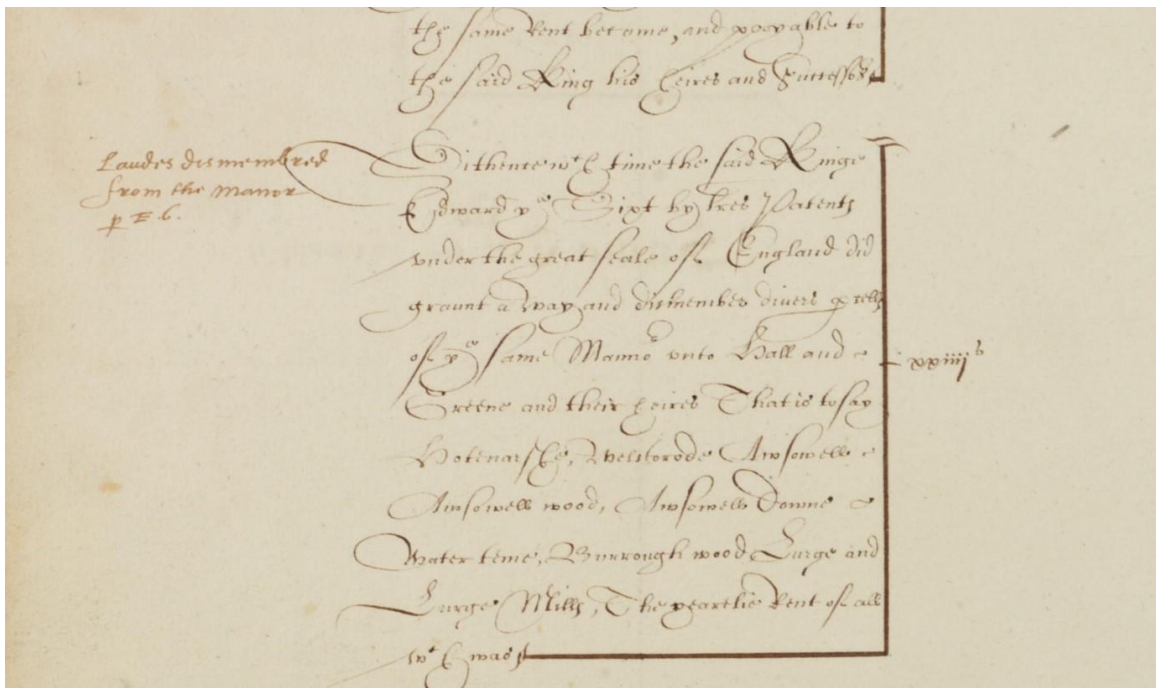 the same Rent became, and payable to
the said King his heires and Successors
Landes dismembred
from the Manor
p E 6.
Sithence wch time the said Kinge
Edward ye Sixt by lres Patents
under the great seale of England did
graunt a way and dismember divers pcells
of ye same Manno r unto Hall and
Greene and their heires That is to say
xxiiijs
Hotenarshe, Welstorode Awsowell
Awsowell wood, Awsowell Downe
Water teme, Burrough wood Lurge and
Lurge Mills, The yearelie Rent of all
wch was